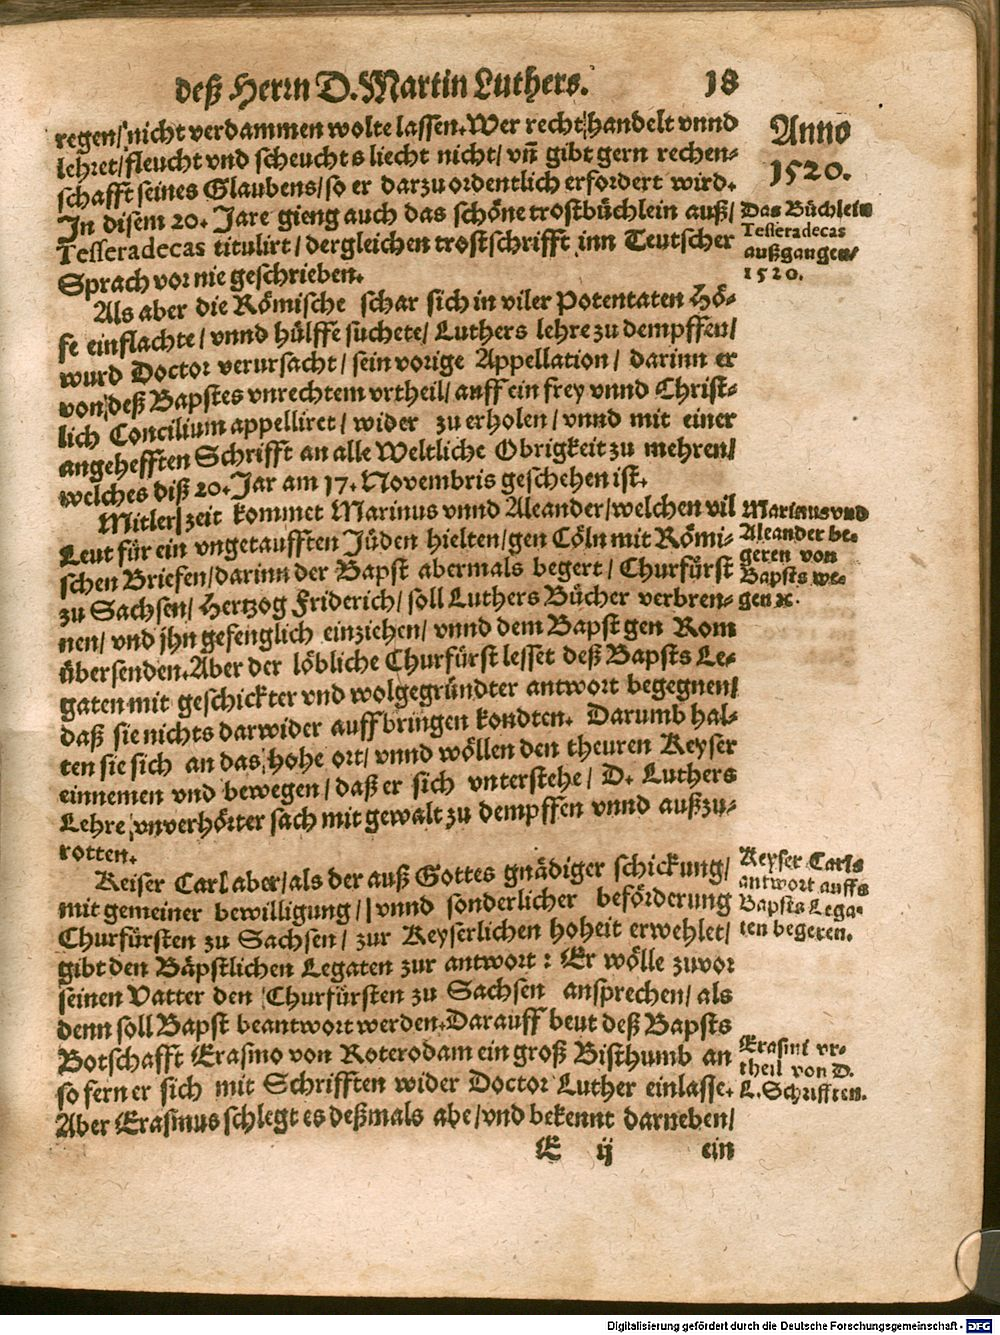 deß Herrn D. Martin Luthers. 18
regen/ nicht verdammen wolte lassen. Wer recht handelt vnnd
lehret/ fleucht vnd scheucht s liecht nicht/ vñ gibt gern rechen-
schafft seines Glaubens/ so er darzu ordentlich erfordert wird.
In disem 20. Jare gieng auch das schöne trostbüchlein auß/
Tesseradecas titulirt/ dergleichen trostschrifft inn Teutscher
Sprach vor nie geschrieben.
Als aber die Römische schar sich in viler Potentaten Hö-
fe einflachte/ vnnd hülffe suchete/ Luthers lehre zu dempffen/
wurd Doctor verursacht/ sein vorige Appellation/ darinn er
von deß Bapstes vnrechtem vrtheil/ auff ein frey vnnd Christ-
lich Concilium appelliret/ wider zu erholen/ vnnd mit einer
angehefften Schrifft an alle Weltliche Obrigkeit zu mehren/
welches diß 20. Jar am 17. Novembris geschehen ist.
Mitler zeit kommet Marinus vnnd Aleander/ welchen vil
Leut für ein vngetaufften Jüden hielten/ gen Cöln mit Römi-
schen Briefen/ darinn der Bapst abermals begert/ Churfürst
zu Sachsen/ Hertzog Friderich/ soll Luthers Bücher verbren-
nen/ vnd jhn gefenglich einziehen/ vnnd dem Bapst gen Rom
übersenden. Aber der löbliche Churfürst lesset deß Bapsts Le-
gaten mit geschickter vnd wolgegründter antwort begegnen/
daß sie nichts darwider auffbringen kondten. Darumb hal-
ten sie sich an das hohe ort/ vnnd wöllen den theuren Keyser
einnemen vnd bewegen/ daß er sich vnterstehe/ D. Luthers
Lehre vnverhörter sach mit gewalt zu dempffen vnnd außzu-
rotten.
Keiser Carl aber/ als der auß Gottes gnädiger schickung/
mit gemeiner bewilligung/ vnnd sonderlicher beförderung
Churfürsten zu Sachsen/ zur Keyserlichen hoheit erwehlet/
gibt den Bäpstlichen Legaten zur antwort: Er wölle zuvor
seinen Vatter den Churfürsten zu Sachsen ansprechen/ als
denn soll Bapst beantwort werden. Darauff beut deß Bapsts
Botschafft Erasmo von Roterodam ein groß Bisthumb an
so fern er sich mit Schrifften wider Doctor Luther einlasse.
Aber Erasmus schlegt es deßmals abe/ vnd bekennt darneben/
E ij ein
Anno
1520.
Das Büchlein
Tesseradecas
außgangen/
1520.
Marinus vnd
Aleander be-
geren von
Bapsts we-
gen ꝛc.
Keyser Carls
antwort auffs
Bapsts Lega-
ten begeren.
Erasmi vr-
theil von D.
L. Schrifften.
Digitalisierung gefördert durch die Deutsche Forschungsgemeinschaft - DFG